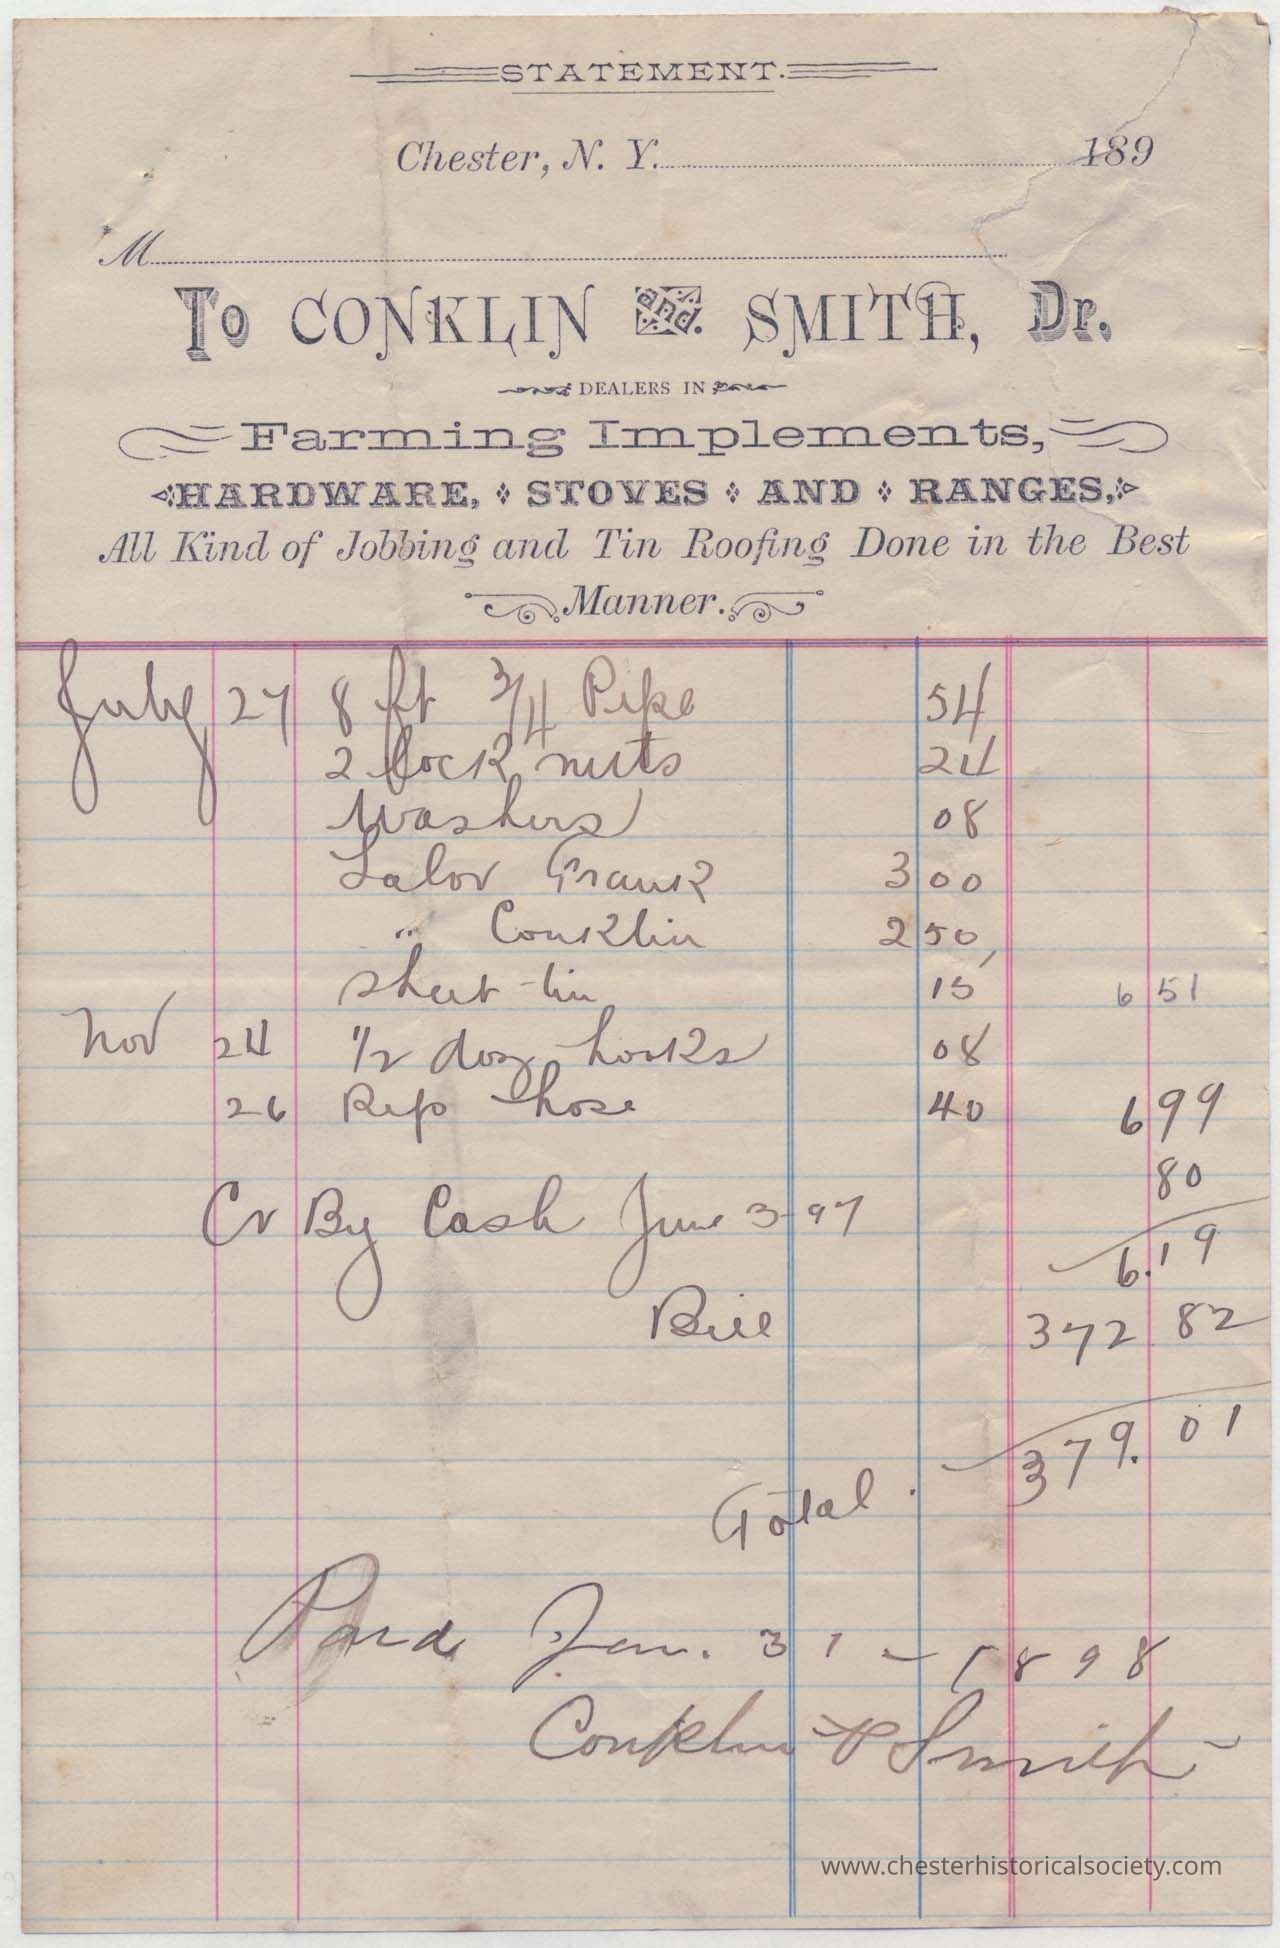 STATEMENT.
Chester, N. Y. 189
M
To CONKLIN and. SMITH, Dr.
DEALERS IN
Farming Implements,
HARDWARE, STOVES AND RANGES,
All Kind of Jobbing and Tin Roofing Done in the Best
Manner.
July 27 8 ft 3/4 Pipe 54
2 lock nuts 24
Washers 08
Labor Frank 3 00
" Conklin 2 50
sheet tin 15 6 51
Nov 24 1/2 doz hooks 08
26 Rep hose 40 6 99
80
Cr By Cash June 3-97
6.19
Bill 372 82
379.01
Total.
Paid Jan. 31-1898
Conklin & Smith
www.chesterhistoricalsociety.com